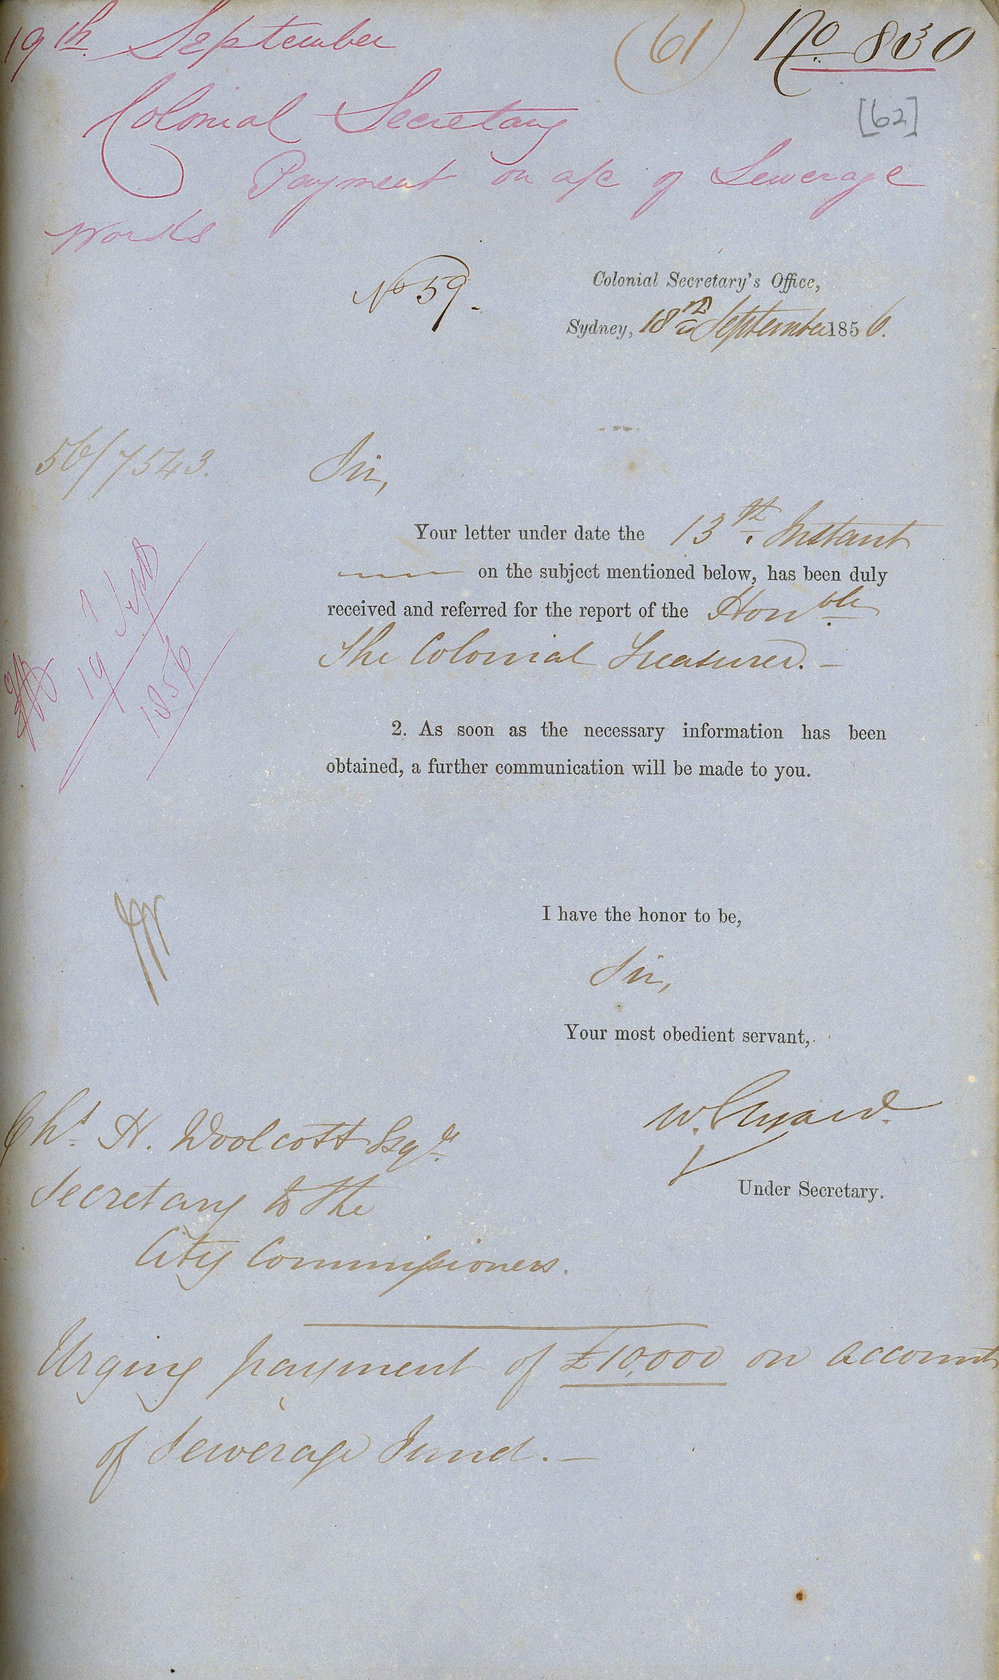 19th September (61) No. 830
Colonial Secretary [62]
Payment on a/c of Sewerage
Works
No 59.
Colonial Secretary's Office,
Sydney, 18th September 1856.
56/7543.
Sir,
Your letter under date the 13th. Instant
on the subject mentioned below, has been duly
received and referred for the report of the Honble
The Colonial Treasurer. —
19 Sept
1856
2. As soon as the necessary information has been
obtained, a further communication will be made to you.
I have the honor to be,
Sir,
Your most obedient servant,
W. Elyard.
Under Secretary.
Chs. H. Woolcott Esqre.
Secretary to the
City Commissioners.
Urging payment of £10,000 on account
of Sewerage Fund. —